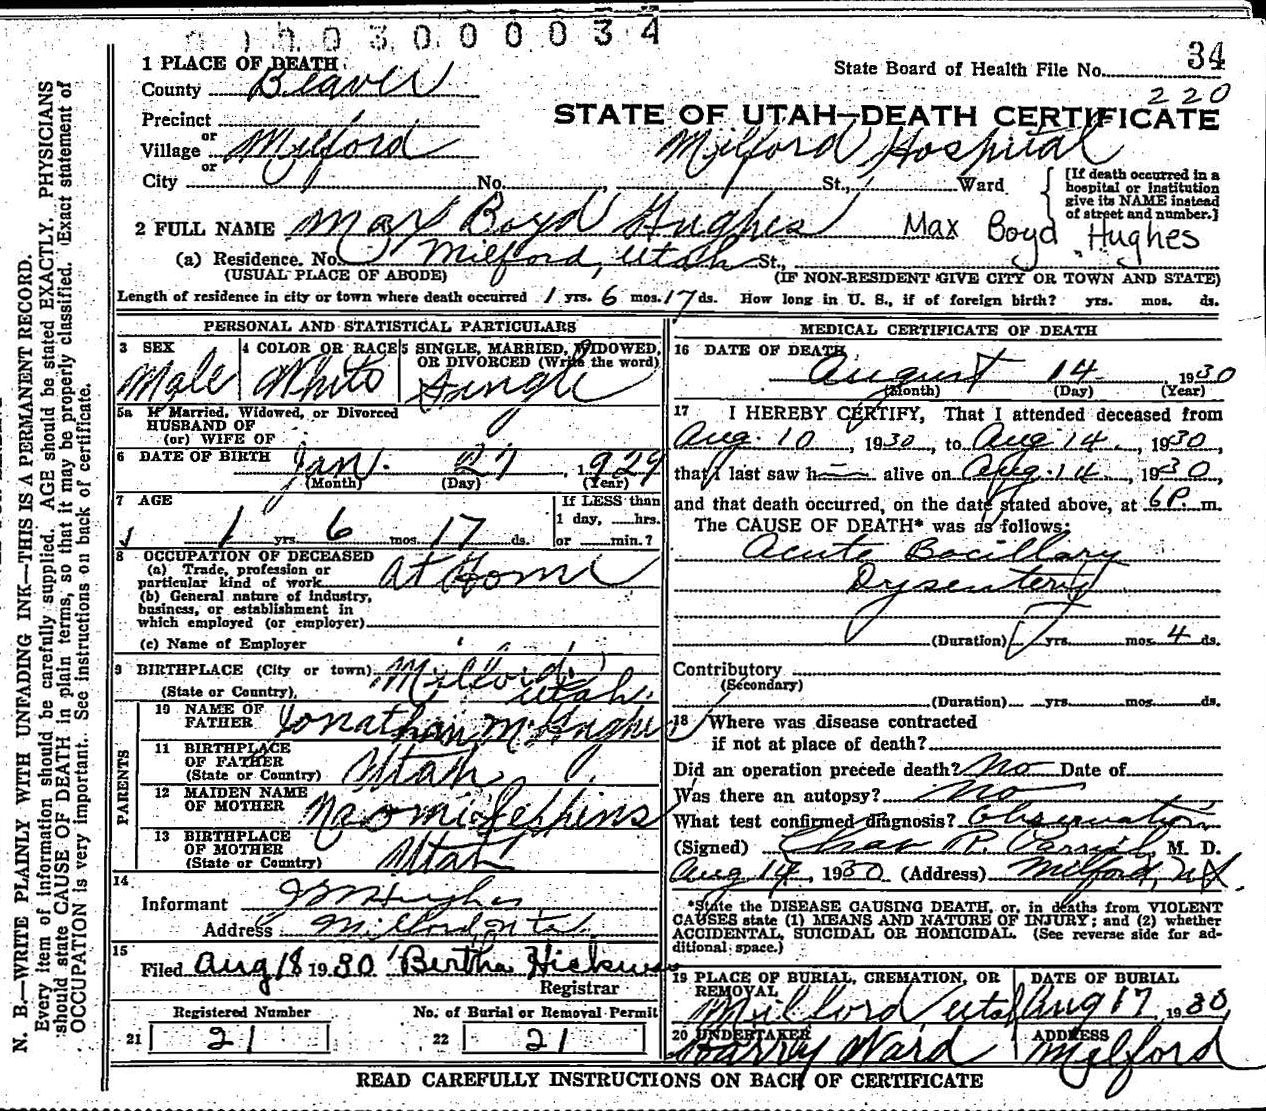 0 3 0 0 0 0 3 4
34
1 PLACE OF DEATH
State Board of Health File No.
220
County Beaver
STATE OF UTAH—DEATH CERTIFICATE
Precinct
or
Village Milford
Milford Hospital
or
City No. St., Ward
[If death occurred in a
hospital or institution
give its NAME instead
of street and number.]
2 FULL NAME Max Boyd Hughes Max Boyd Hughes
(a) Residence. No. Milford, Utah St.,
(USUAL PLACE OF ABODE) (IF NON-RESIDENT GIVE CITY OR TOWN AND STATE)
Length of residence in city or town where death occurred 1 yrs. 6 mos. 17 ds. How long in U. S., if of foreign birth? yrs. mos. ds.
PERSONAL AND STATISTICAL PARTICULARS
3 SEX
Male
4 COLOR OR RACE
White
5 SINGLE, MARRIED, WIDOWED,
OR DIVORCED (Write the word)
Single
5a If Married, Widowed, or Divorced
HUSBAND OF
(or) WIFE OF
6 DATE OF BIRTH Jan. 27, 1929
(Month) (Day) (Year)
7 AGE
1 yrs. 6 mos. 17 ds.
If LESS than
1 day, hrs.
or min.?
8 OCCUPATION OF DECEASED
(a) Trade, profession or
particular kind of work At Home
(b) General nature of industry,
business, or establishment in
which employed (or employer)
(c) Name of Employer
9 BIRTHPLACE (City or town) Milford,
(State or Country) Utah.
PARENTS
10 NAME OF
FATHER Jonathan M. Hughes
11 BIRTHPLACE
OF FATHER
(State or Country) Utah
12 MAIDEN NAME
OF MOTHER Naomi
13 BIRTHPLACE
OF MOTHER
(State or Country) Utah
14
Informant J M Hughes
Address Milford Uta.
15
Filed Aug 18 1930 Bertha
Registrar
Registered Number No. of Burial or Removal Permit
21 21 22 21
MEDICAL CERTIFICATE OF DEATH
16 DATE OF DEATH
August 14 1930
(Month) (Day) (Year)
17 I HEREBY CERTIFY, That I attended deceased from
Aug. 10, 1930, to Aug 14., 1930,
that I last saw h alive on Aug. 14, 1930,
and that death occurred, on the date stated above, at 6 P. m.
The CAUSE OF DEATH* was as follows:
Acute Bacillary
Dysentery
(Duration) yrs. mos. 4 ds.
Contributory
(Secondary)
(Duration) yrs. mos. ds.
18 Where was disease contracted
if not at place of death?
Did an operation precede death? No Date of
Was there an autopsy? No
What test confirmed diagnosis? Observation
(Signed) Chas R. M. D.
Aug 14, 1930 (Address) Milford, Ut.
*State the DISEASE CAUSING DEATH, or, in deaths from VIOLENT
CAUSES state (1) MEANS AND NATURE OF INJURY; and (2) whether
ACCIDENTAL, SUICIDAL OR HOMICIDAL. (See reverse side for ad-
ditional space.)
19 PLACE OF BURIAL, CREMATION, OR
REMOVAL
Milford Utah
DATE OF BURIAL
Aug 17 1930
20 UNDERTAKER
Harry Ward
ADDRESS
Milford
READ CAREFULLY INSTRUCTIONS ON BACK OF CERTIFICATE
N. B.—WRITE PLAINLY WITH UNFADING INK—THIS IS A PERMANENT RECORD.
Every item of information should be carefully supplied. AGE should be stated EXACTLY. PHYSICIANS
should state CAUSE OF DEATH in plain terms, so that it may be properly classified. Exact statement of
OCCUPATION is very important. See instructions on back of certificate.